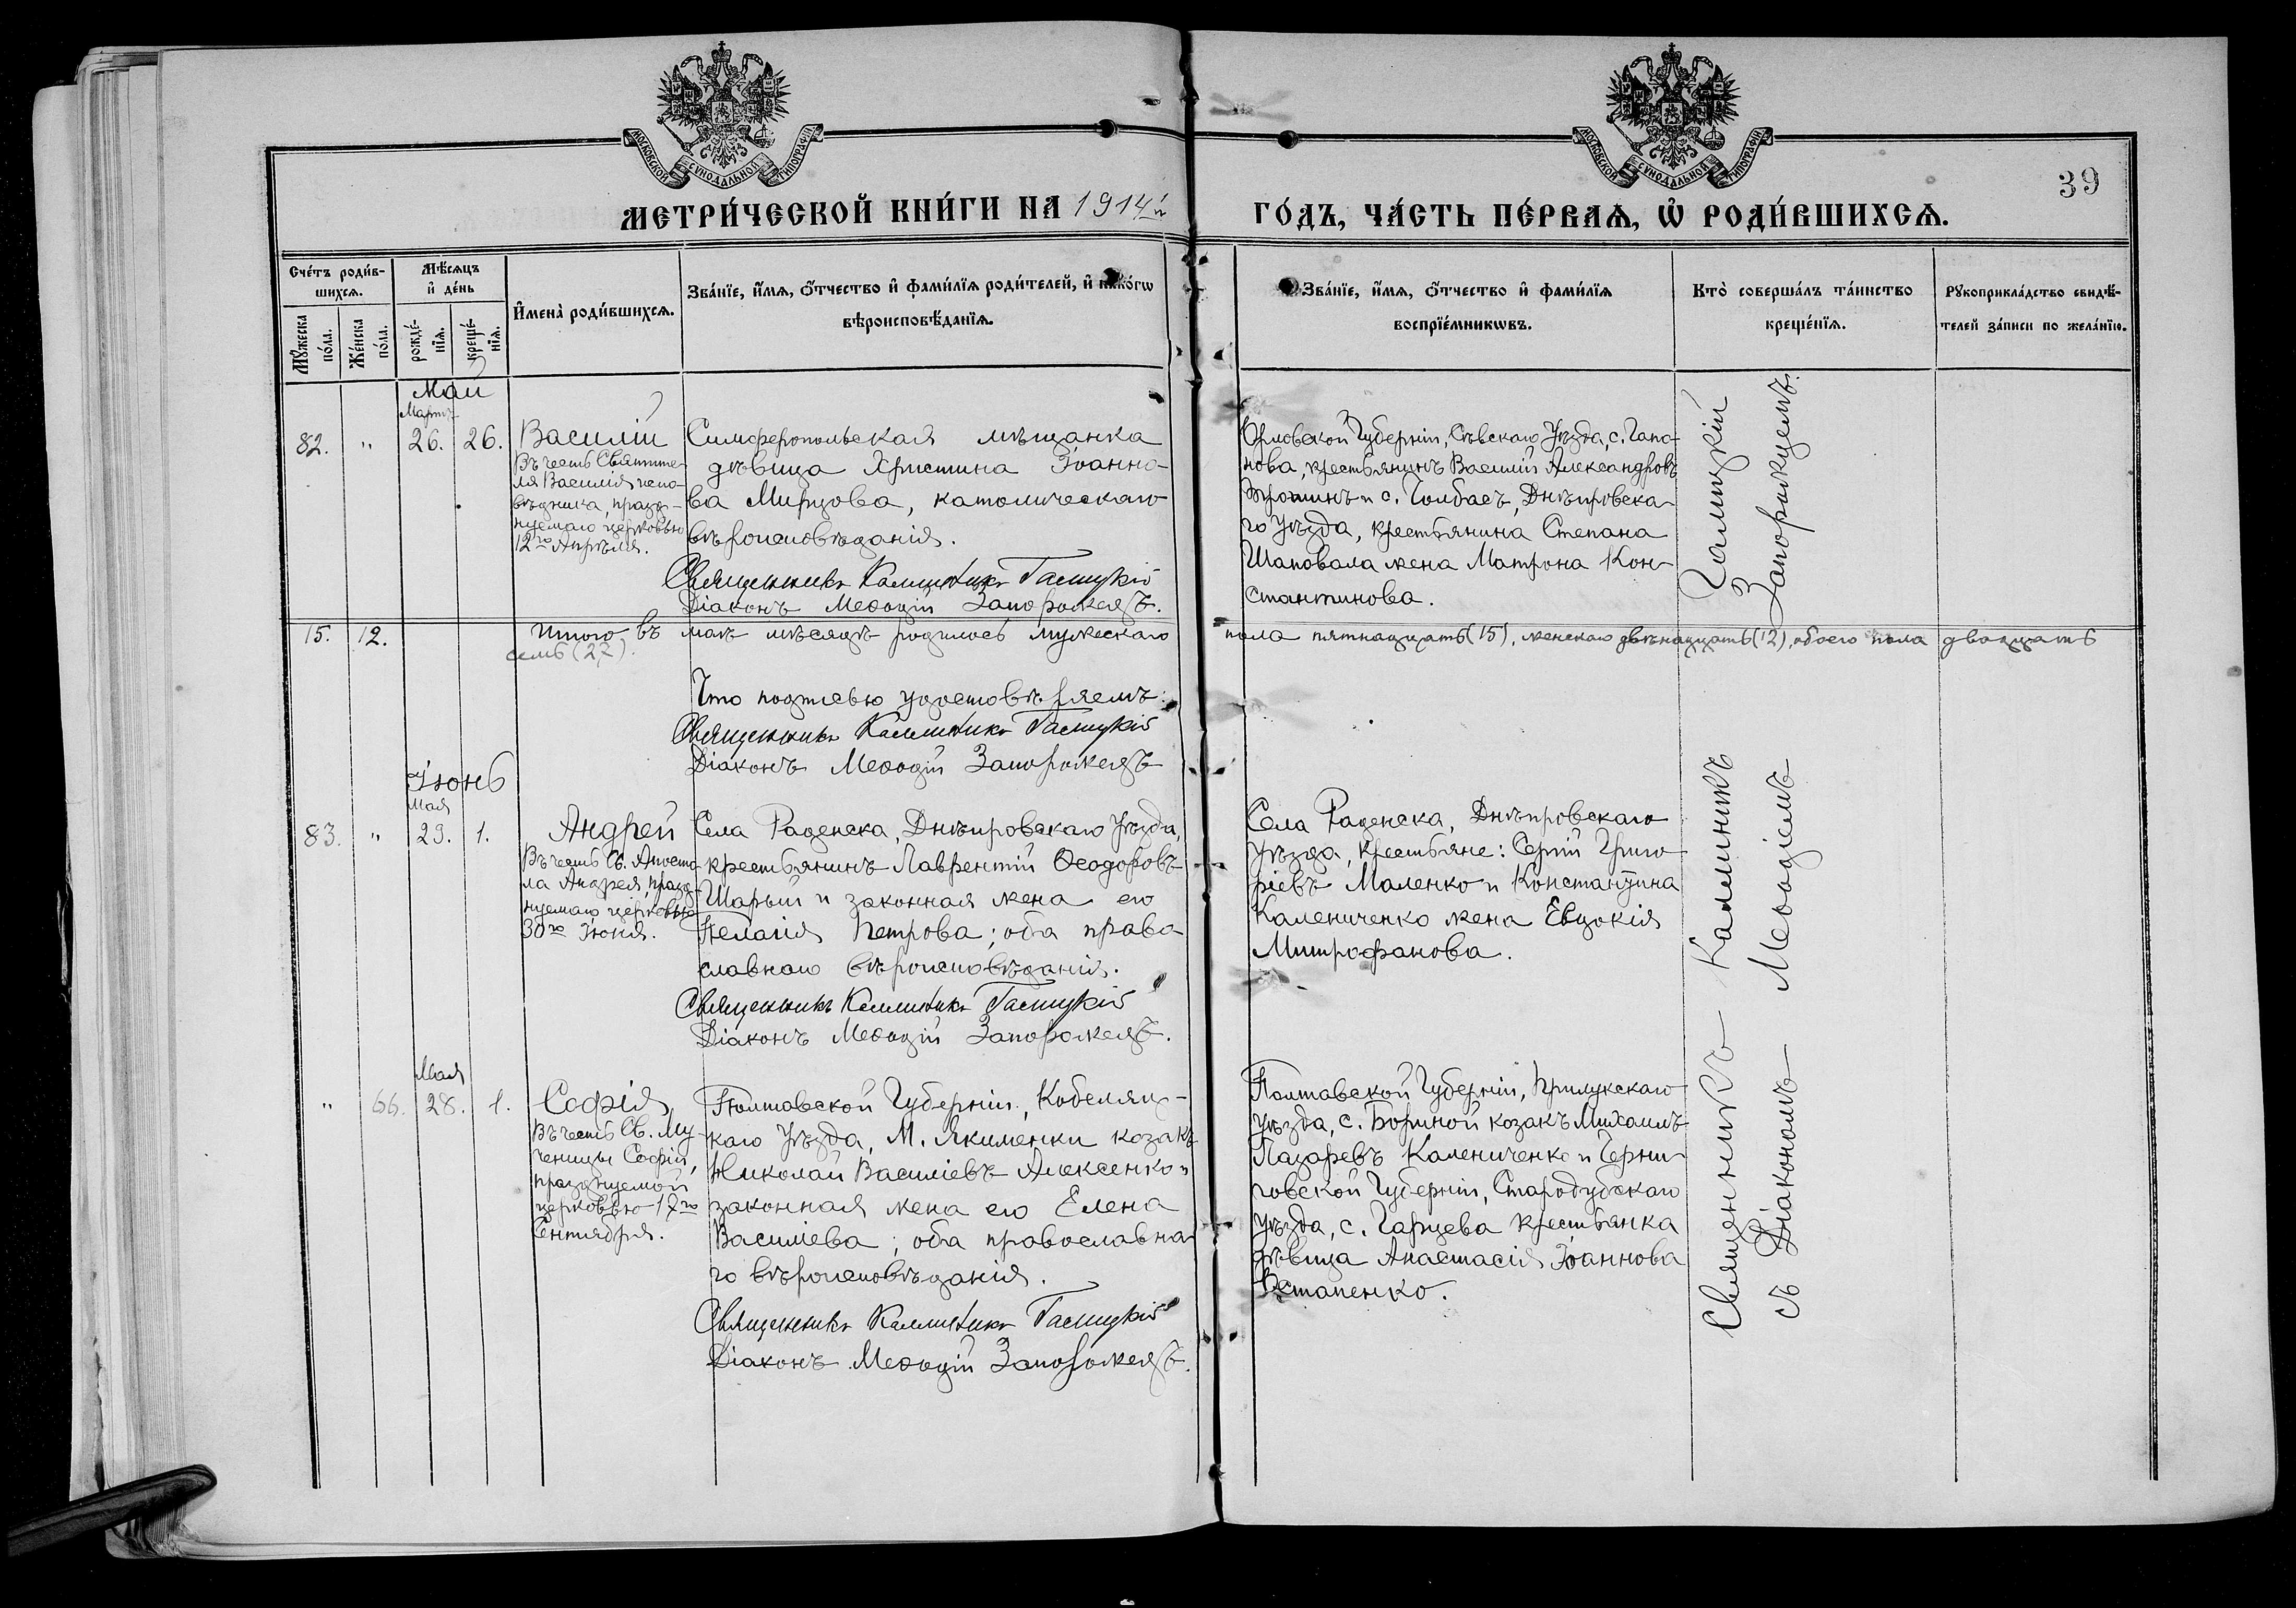 МОСКОВСКОЙ СУНОДАЛЬНОЙ ТИПОГРАФІИ
МОСКОВСКОЙ СУНОДАЛЬНОЙ ТИПОГРАФІИ
39
МЕТРИ́ЧЕСКОЙ КНИ́ГИ НА 1914й
ГО́ДЪ, ЧА́СТЬ ПЕ́РВАѦ, Ѡ҆ РОДИ́ВШИХСѦ.
Сче́тъ роди́в-
шихсѧ.
Мꙋ́жеска по́ла.
Же́нска по́ла.
Мѣ́сѧцъ
и҆ де́нь
рожде́-
нїѧ.
креще́-
нїѧ.
И҆мена̀ роди́вшихсѧ.
Зва́нїе, и҆́мѧ, ѻ҆́тчество и҆ фами́лїѧ роди́телей, и҆ како́гѡ
вѣроисповѣ́данїѧ.
Зва́нїе, и҆́мѧ, ѻ҆́тчество и҆ фами́лїѧ
воспрїе́мникѡвъ.
Кто̀ соверша́лъ та́инство
креще́нїѧ.
Рꙋкоприкла́дство свидѣ́-
телей за́писи по жела́нїю.
Май
Мартъ
82. " 26. 26.
Василій
Въ честь Святите-
ля Василія испо-
вѣдника, празд-
нуемаго церковью
12го Апрѣля.
Симферопольская мѣщанка
дѣвица Христина Іоанно-
ва Мирцова, католическаго
вѣроисповѣданія.
Священникъ Каллиникъ Галицкій
Діаконъ Меѳодій Запорожецъ.
Орловской Губерніи, Сѣвскаго Уѣзда, с. Гапо-
нова, крестьянинъ Василій Александровъ
и с. Чолбасъ, Днѣпровска-
го Уѣзда, крестьянина Степана
Шаповала жена Матрона Кон-
стантинова.
15. 12.
Итого, въ маѣ мѣсяцѣ родилось мужескаго пола пятнадцать (15), женскаго двѣнадцать (12), обоего пола двадцать
семь (27).
Что подписью удостовѣряемъ:
Священникъ Каллиникъ Галицкій
Діаконъ Меѳодій Запорожецъ
Іюнь
Мая
83. " 29. 1.
Андрей
Въ честь Св. Апосто-
ла Андрея, празд-
нуемаго церковью
30го Іюня.
Села Раденска, Днѣпровскаго Уѣзда,
крестьянинъ Лаврентій Ѳеодоровъ
Шарый и законная жена его
Пелагія Петрова; оба право
славнаго вѣроисповѣданія.
Священникъ Каллиникъ Галицкій
Діаконъ Меѳодій Запорожецъ.
Села Раденска, Днѣпровскаго
уѣзда, крестьяне: Сергій Григо
ріевъ Маленко и Константина
Калениченко жена Евдокія
Митрофанова.
Мая
" 66. 28. 1.
Софія
Въ честь Св. Му-
ченицы Софіи,
празднуемой
церковью 17го
Сентября.
Полтавской Губерніи, Кобеляц-
каго Уѣзда, М. Якименки козакъ
Николай Василіевъ Алексенко и
законная жена его Елена
Василіева; оба православна-
го вѣроисповѣданія.
Священникъ Каллиникъ Галицкій
Діаконъ Меѳодій Запорожецъ.
Полтавской Губерніи, Прилукскаго
уѣзда, с. козакъ Михаилъ
Лазаревъ Калениченко и Черни-
говской Губерніи, Стародубскаго
уѣзда, с. Гарцева крестьянка
дѣвица Анастасія Іоаннова
Остапенко.
Священникъ Каллиникъ Галицкій
съ Діакономъ Меѳодіемъ Запорожцемъ.